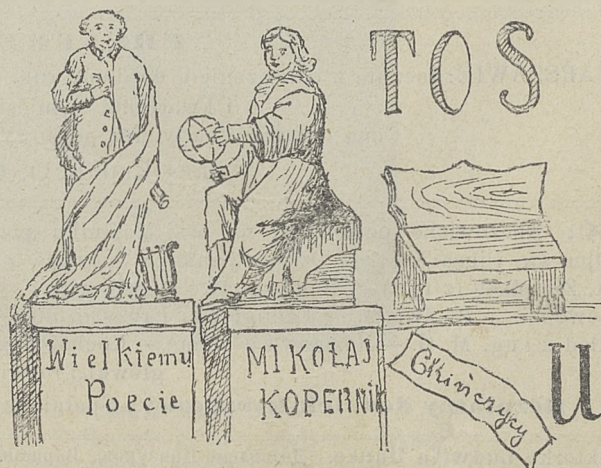 TOS
Wielkiemu
Poecie
MIKOŁAJ
KOPERNIK
Chińczycy
U